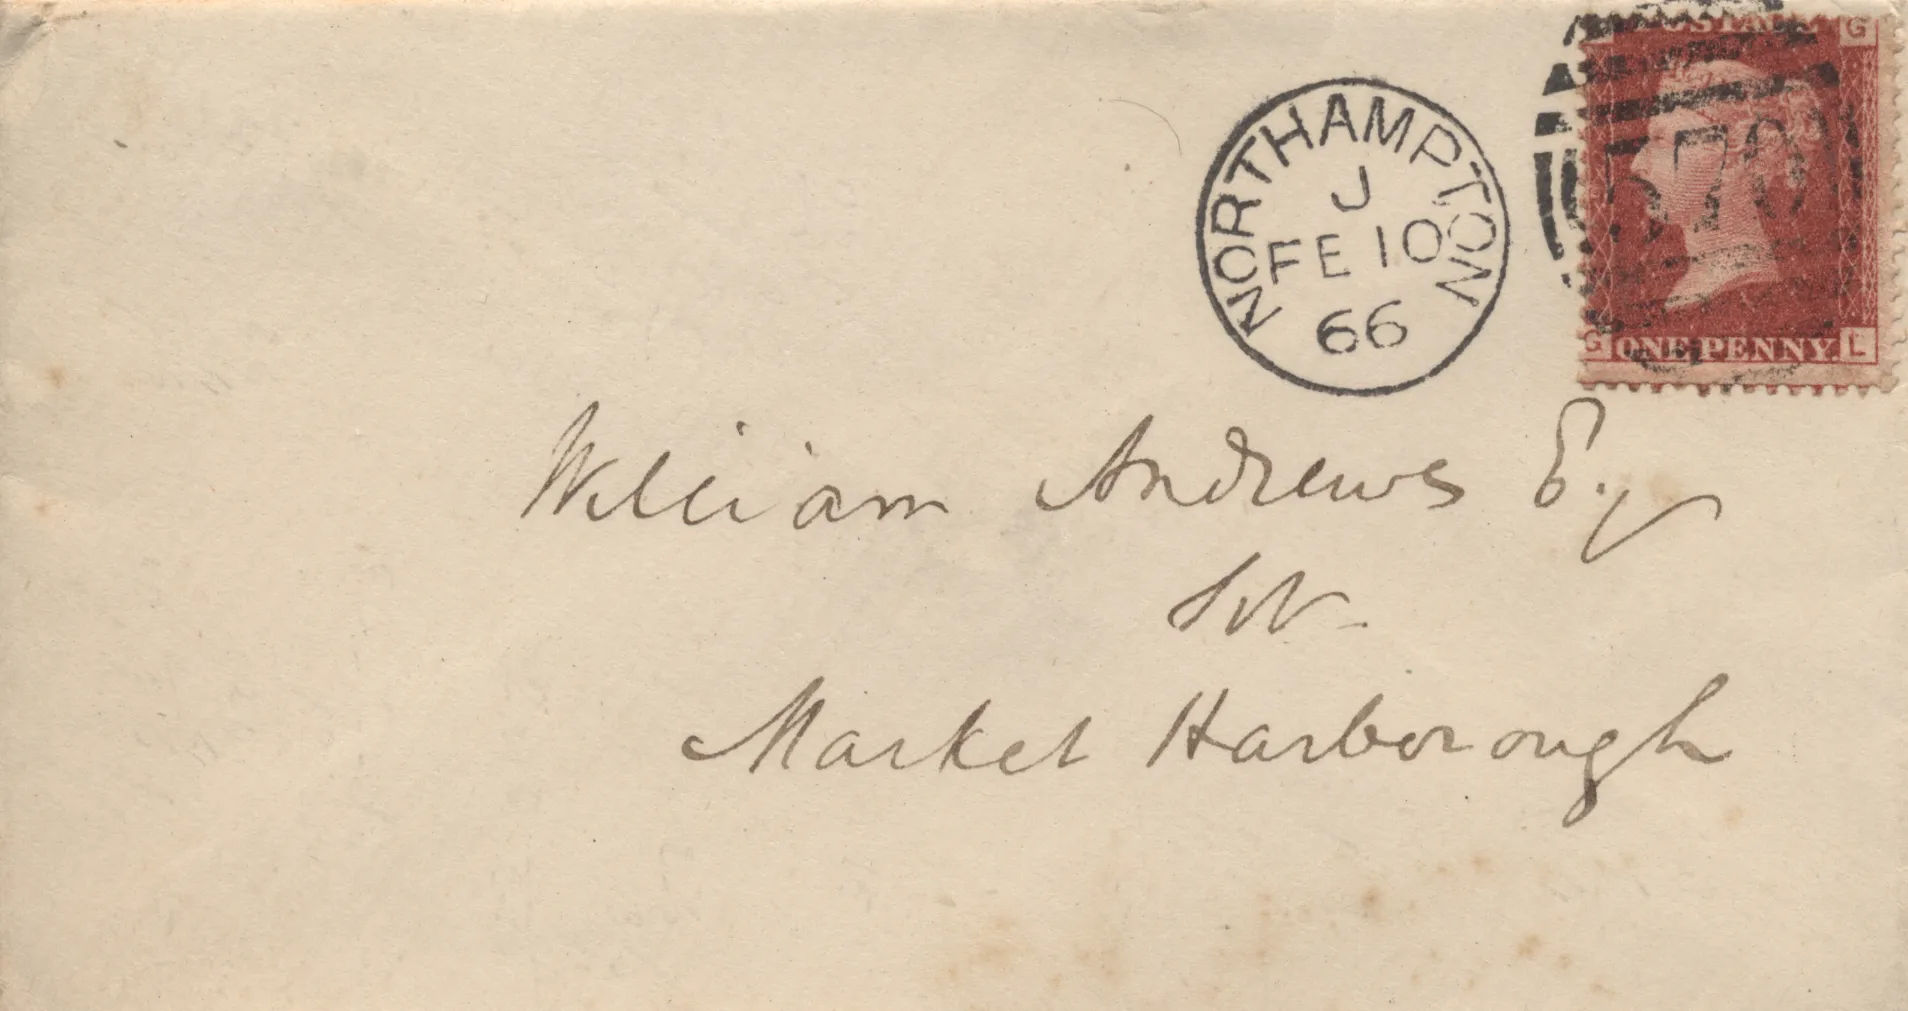 POSTAGE
G
578
G ONE PENNY. L
NORTHAMPTON
J
FE 10
66
William Andrews Esq
Market Harborough